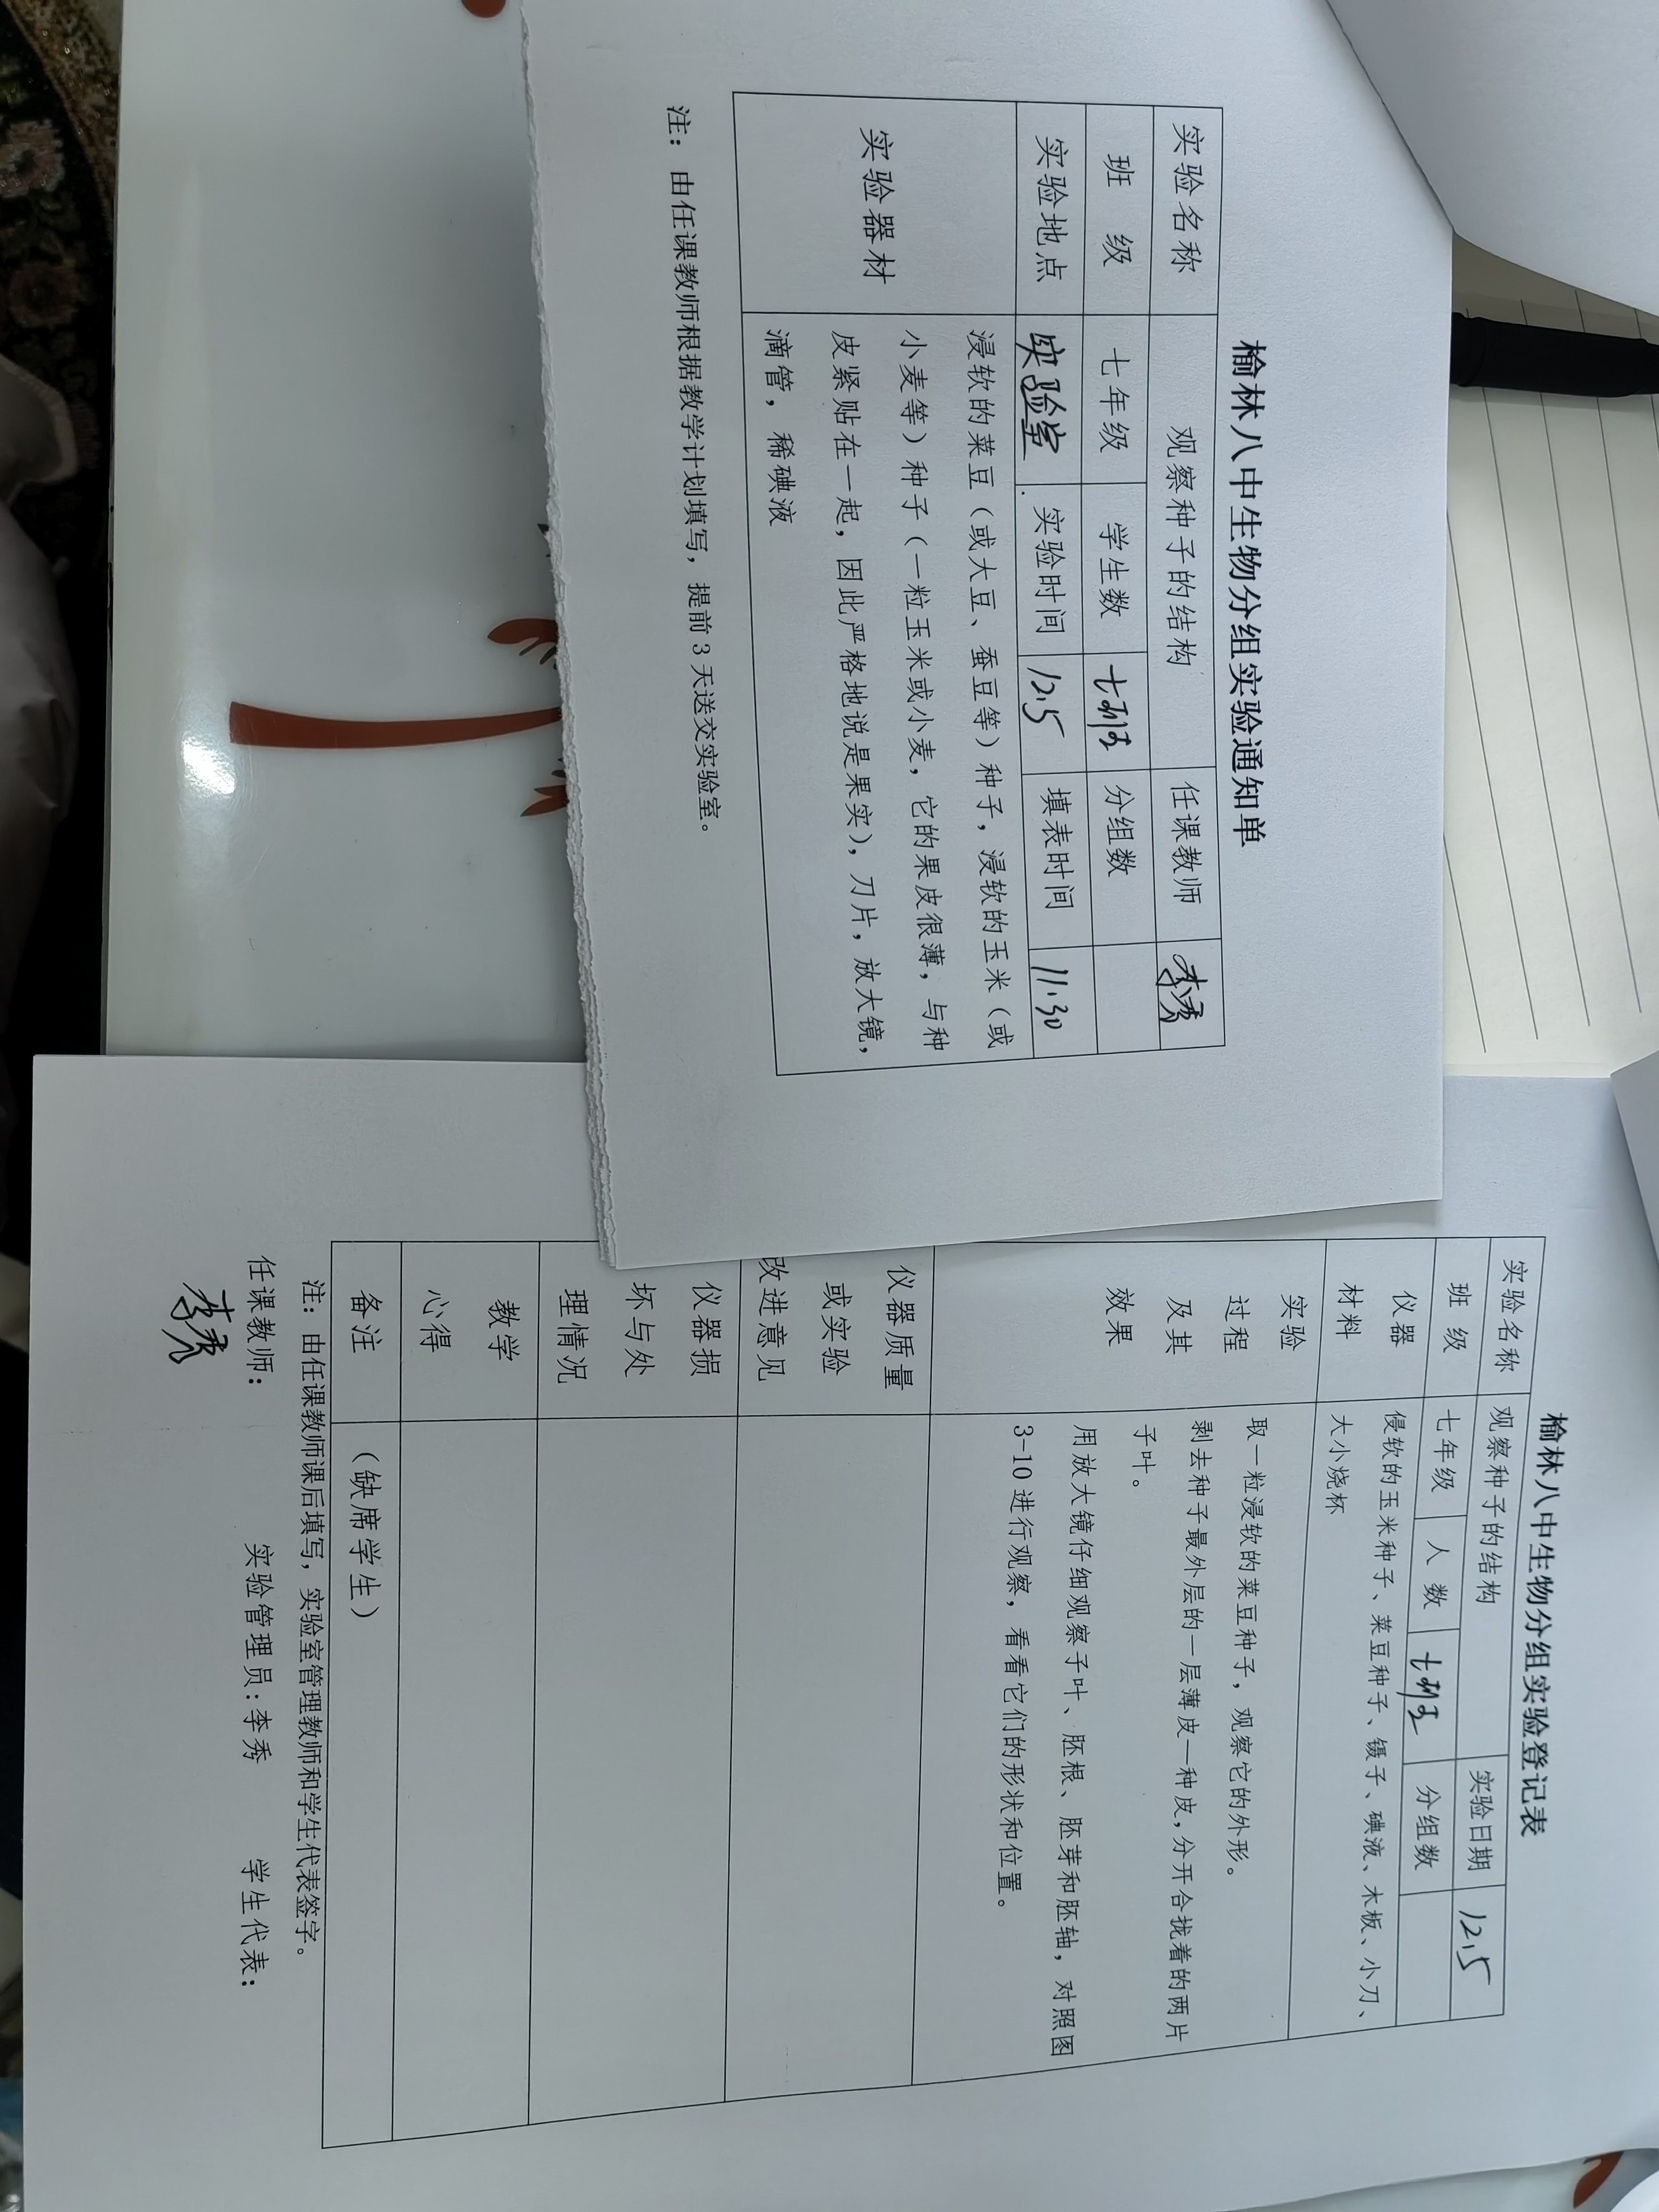 榆林八中生物分组实验通知单
实验名称 观察种子的结构 任课教师 李秀
班 级 七年级 学生数 七班 分组数
实验地点 实验室 实验时间 12.5 填表时间 11.30
实验器材
浸软的菜豆（或大豆、蚕豆等）种子，浸软的玉米（或
小麦等）种子（一粒玉米或小麦，它的果皮很薄，与种
皮紧贴在一起，因此严格地说是果实），刀片，放大镜，
滴管，稀碘液
注：由任课教师根据教学计划填写，提前 3 天送交实验室。
榆林八中生物分组实验登记表
实验名称 观察种子的结构 实验日期 12.5
班 级 七年级 人 数 七班 分组数
仪器
材料
侵软的玉米种子、菜豆种子、镊子、碘液、木板、小刀、
大小烧杯
实验
过程
及其
效果
取一粒浸软的菜豆种子，观察它的外形。
剥去种子最外层的一层薄皮—种皮，分开合拢着的两片
子叶。
用放大镜仔细观察子叶、胚根、胚芽和胚轴，对照图
3-10 进行观察，看看它们的形状和位置。
仪器质量
或实验
改进意见
仪器损
坏与处
理情况
教学
心得
备注 （缺席学生）
注：由任课教师课后填写，实验室管理教师和学生代表签字。
任课教师： 实验管理员:李秀 学生代表：
李秀